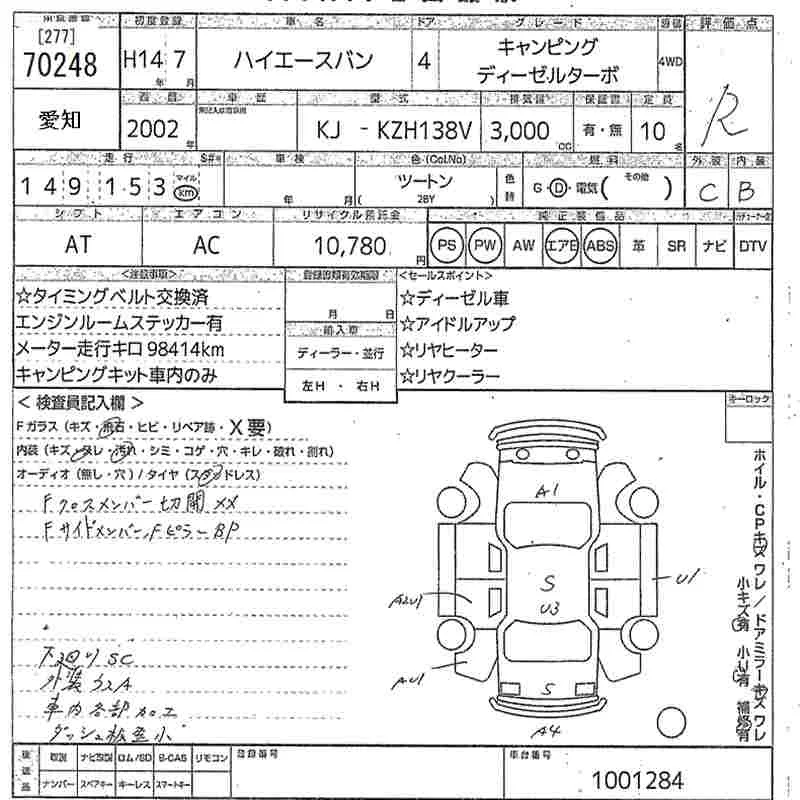 初度登録 車名 ドア グレード 評価点
[277]
70248 H14年 7月 ハイエースバン 4 キャンピング ディーゼルターボ 4WD R
愛知
車歴 型式 排気量 保証書 定員
2002年 KJ - KZH138V 3,000cc 有・無 10
走行 車検 色(Col.No) 燃料 外装 内装
149,153 マイル km 年 月 ツートン 色替 G・D・電気( その他 ) C B
( 2BY )
シフト エアコン リサイクル預託金 純正装備品
AT AC 10,780円 PS PW AW エアB ABS 革 SR ナビ DTV
<注意事項> 登録書類有効期限 <セールスポイント>
☆タイミングベルト交換済 ☆ディーゼル車
エンジンルームステッカー有 月 日 ☆アイドルアップ
輸入車
メーター走行キロ98414km ディーラー・並行 ☆リヤヒーター
キャンピングキット車内のみ 左H ・ 右H ☆リヤクーラー
<検査員記入欄> キーロック
Fガラス(キズ・飛石・ヒビ・リペア跡・X要)
内装(キズ・スレ・汚れ・シミ・コゲ・穴・キレ・破れ・割れ)
オーディオ(無し・穴)/タイヤ(スタッドレス)
Fクロスメンバー切開XX
Fサイドメンバー、Fピラー BP
A1
S
U3
U1
A2U1
AU1
S
A4
下廻りSC
外装カスA
車内各部加工
ダッシュ板金小
ホイル・CPキズワレ/ドアミラーキズワレ
小キズ有 小U有 補修有
後送品 取説 ナビ取説 ロム/SD B-CAS リモコン 登録番号 車台番号
ナンバー スペアキー キーレス スマートキー 1001284